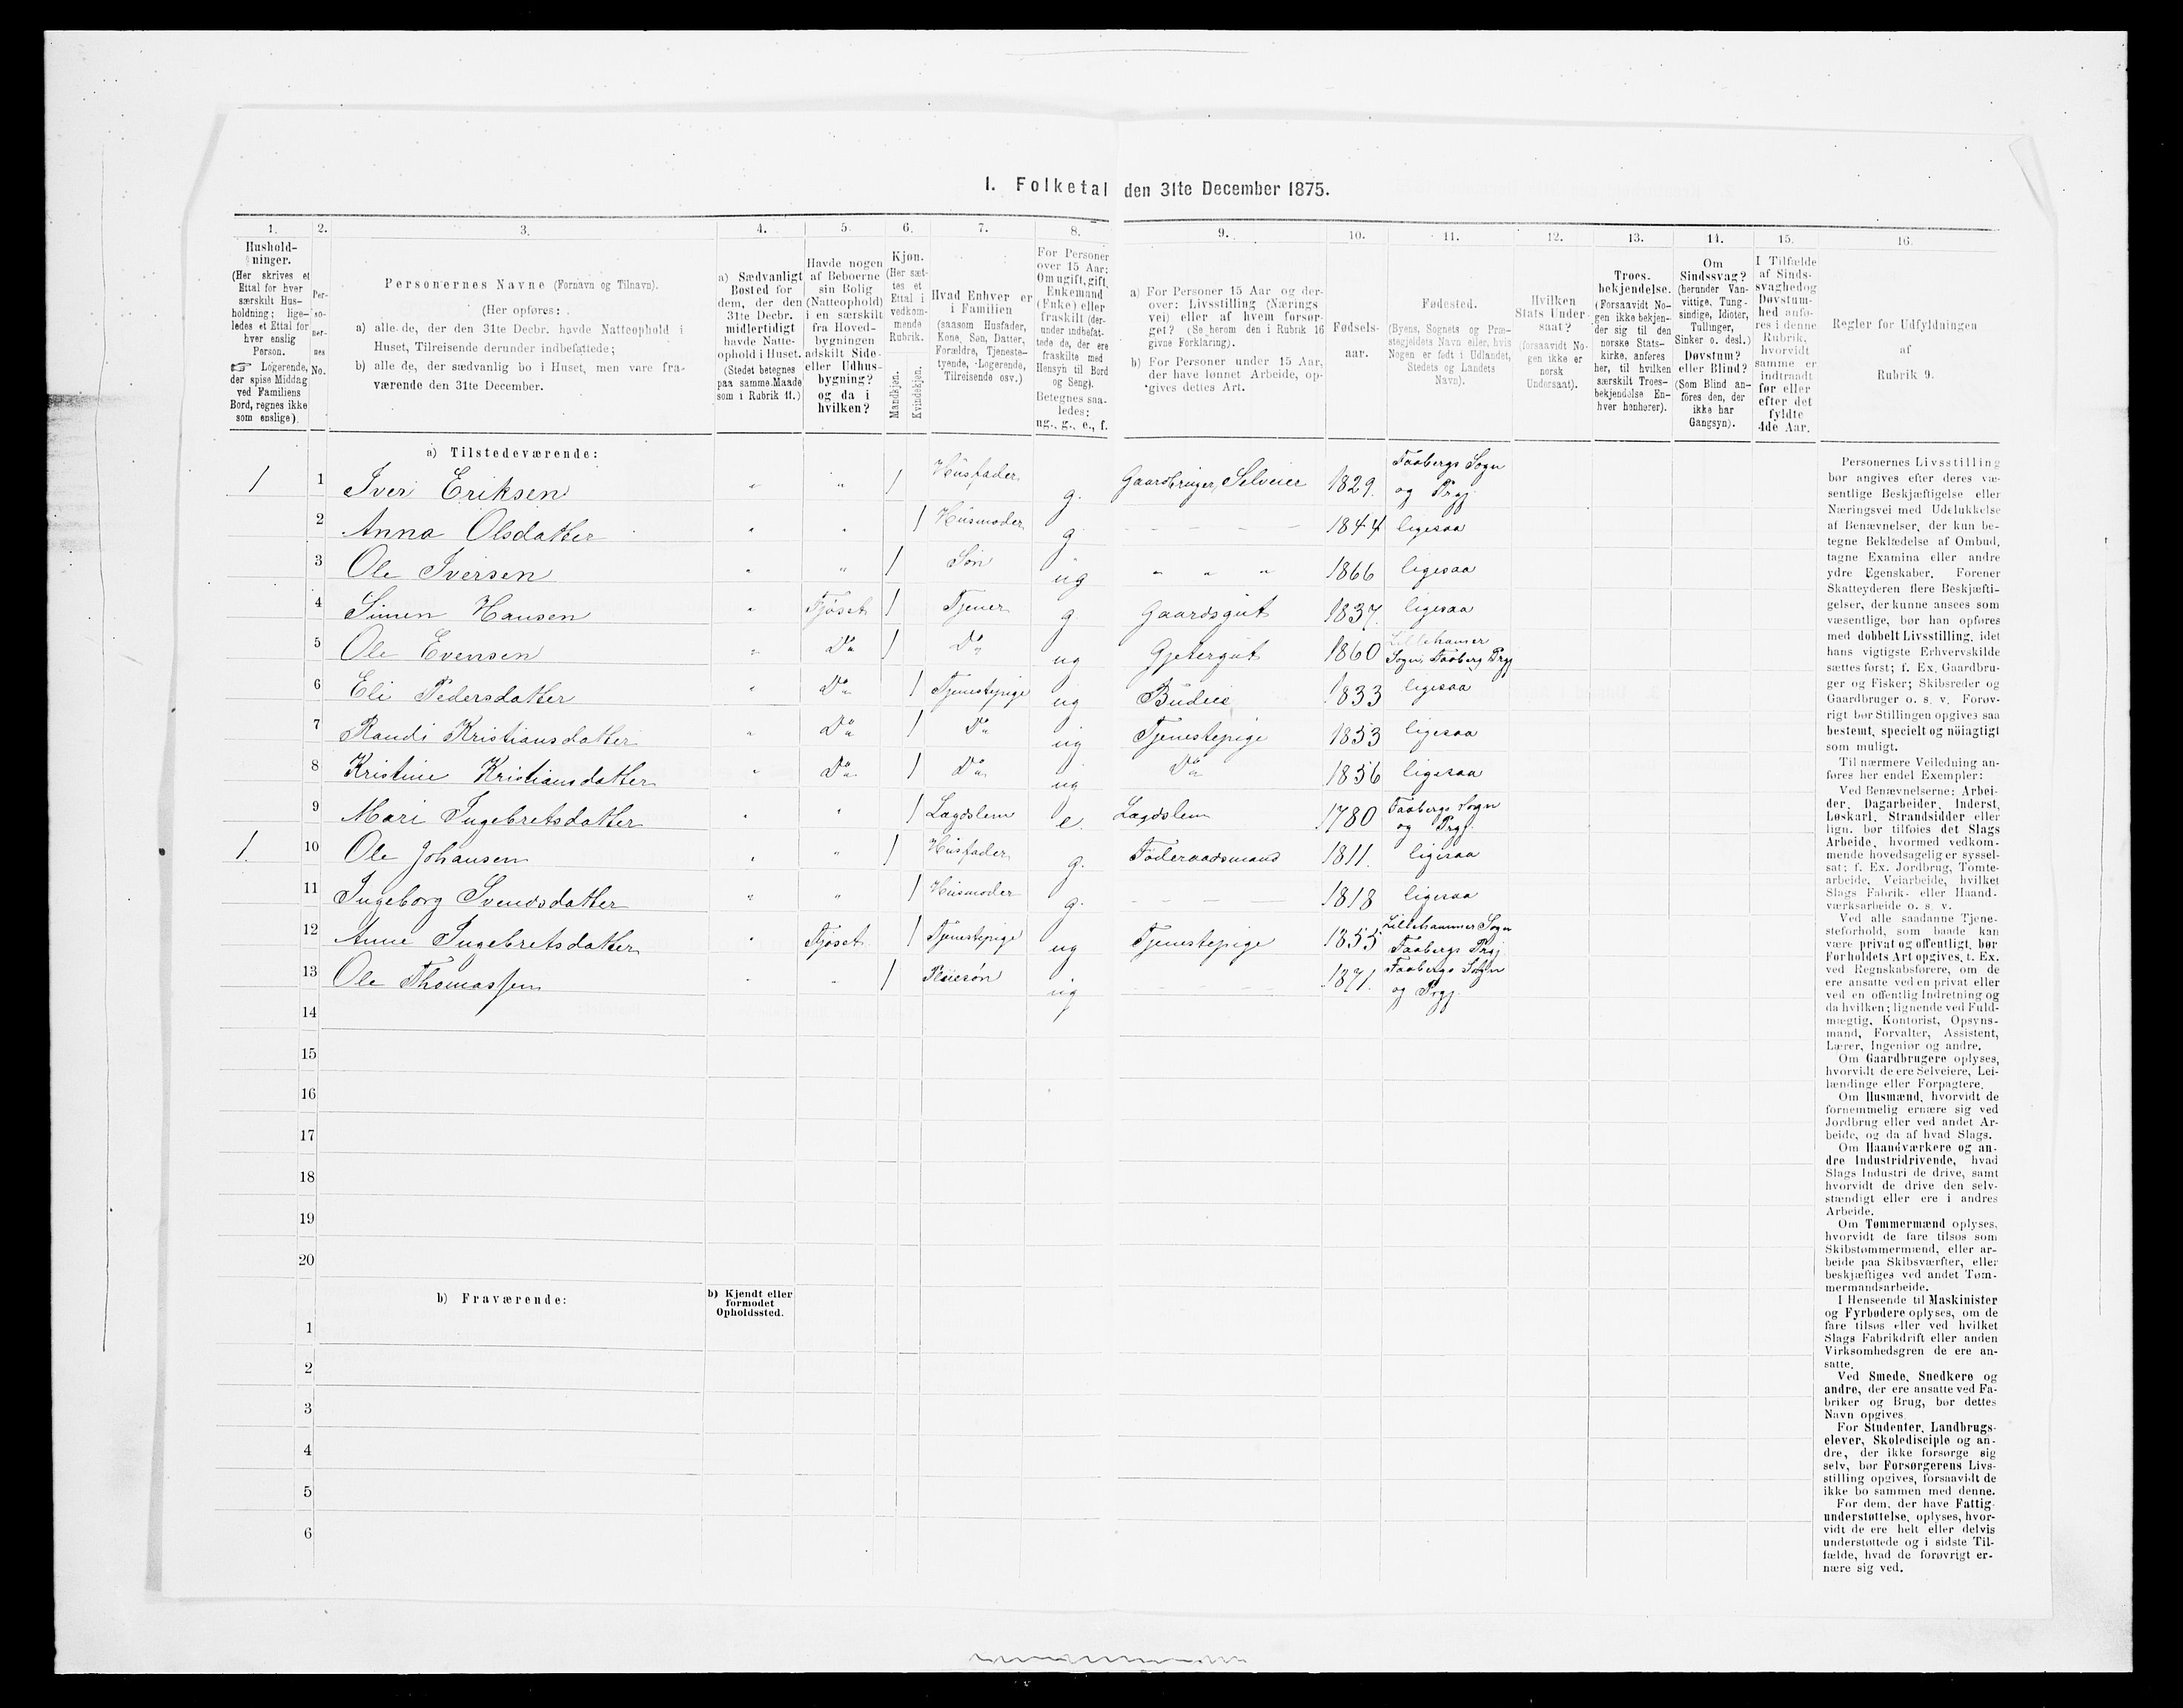 I. Folketal den 31te December 1875.
1.
Hushold-
ninger.
(Her skrives et
Ettal for hver
særskilt Hus-
holdning; lige-
ledes et Ettal for
hver enslig
Person.
☞ Logerende,
der spise Middag
ved Familiens
Bord, regnes ikke
som enslige).
2.
Per-
so-
ner-
nes
No.
3.
Personernes Navne (Fornavn og Tilnavn).
(Her opføres:
a) alle de, der den 31te Decbr. havde Natteophold i
Huset, Tilreisende derunder indbefattede;
b) alle de, der sædvanlig bo i Huset, men vare fra-
værende den 31te December.
4.
a) Sædvanligt
Bosted for
dem, der den
31te Decbr.
midlertidigt
havde Natte-
ophold i Huset.
(Stedet betegnes
paa samme Maade
som i Rubrik 11.)
5.
Havde nogen
af Beboerne
sin Bolig
(Natteophold)
i en særskilt
fra Hoved-
bygningen
adskilt Side-
eller Udhus-
bygning?
og da i
hvilken?
6.
Kjøn.
(Her sæt-
tes et
Ettal i
vedkom-
mende
Rubrik.
Mandkjøn.
Kvindekjøn.
7.
Hvad Enhver er
i Familien
(saasom Husfader,
Kone, Søn, Datter,
Forældre, Tjeneste-
tyende, Logerende,
Tilreisende osv.)
8.
For Personer
over 15 Aar:
Om ugift, gift,
Enkemand
(Enke) eller
fraskilt (der-
under indbefat-
tede de, der ere
fraskilte med
Hensyn til Bord
og Seng).
Betegnes saa-
ledes:
ug., g., e., f.
9.
a) For Personer 15 Aar og der-
over: Livsstilling (Nærings
vei) eller af hvem forsør-
get? (Se herom den i Rubrik 16
givne Forklaring).
b) For Personer under 15 Aar,
der have lønnet Arbeide, op-
gives dettes Art.
10.
Fødsels-
aar.
11.
Fødested.
(Byens, Sognets og Præ-
stegjeldets Navn eller, hvis
Nogen er født i Udlandet,
Stedets og Landets
Navn).
12.
Hvilken
Stats Under-
saat?
(forsaavidt No-
gen ikke er
norsk
Undersaat).
13.
Troes-
bekjendelse.
(Forsaavidt No-
gen ikke bekjen-
der sig til den
norske Stats-
kirke, anføres
her, til hvilken
særskilt Troes-
bekjendelse En-
hver henhører).
14.
Om
Sindssvag?
(herunder Van-
vittige, Tung-
sindige, Idioter,
Tullinger,
Sinker o. desl.)
Døvstum?
eller Blind?
(Som Blind an-
føres den, der
ikke har
Gangsyn).
15.
I Tilfælde
af Sinds-
svaghed og
Døvstum-
hed anfø-
res i denne
Rubrik,
hvorvidt
samme er
indtraadt
før eller
efter det
fyldte
4de Aar.
16.
Regler for Udfyldningen
af
Rubrik 9.
a) Tilstedeværende:
1 1 Iver Eriksen " " 1 Husfader g. Gaardbruger, Selveier 1829. Faabergs Sogn og Prgj.
2 Anna Olsdatter " " 1 Husmoder g - - - - - 1844 ligesaa
3 Ole Iversen " " 1 Søn ug " " " 1866 ligesaa
4 Simen Hansen " Fjøset 1 Tjener g Gaardsgut 1837. ligesaa
5 Ole Evensen " Do 1 Do ug Gjetergut 1860 Lillehamer Sogn, Faaberg Prgj
6 Eli Pedersdatter " Do 1 Tjenestepige ug Budeie 1833 ligesaa
7 Randi Kristiansdatter " Do 1 Do ug Tjenestepige 1853 ligesaa
8 Kristine Kristiansdatter " Do 1 Do ug Do 1856 ligesaa
9 Mari Ingebretsdatter " " 1 Lægdslem e. Lægdslem 1780 Faabergs Sogn og Prgj.
1. 10 Ole Johansen " " 1 Husfader g. Föderaadsmand 1811. ligesaa
11 Ingeborg Svendsdatter " " 1 Husmoder g. - - - - 1818 ligesaa
12 Anne Ingebretsdatter " Fjöset 1 Tjenestepige ug Tjenestepige 1855 Lillehammer Sogn Faabergs Prgj.
13 Ole Thomassen " " 1 Pleiesøn ug - - - - 1871. Faabergs Sogn og Prgj.
14
15
16
17
18
19
20
b) Fraværende:
b) Kjendt eller
formodet
Opholdssted.
1
2
3
4
5
6
Personernes Livsstilling
bør angives efter deres væ-
sentlige Beskjæftigelse eller
Næringsvei med Udelukkelse
af Benævnelser, der kun be-
tegne Beklædelse af Ombud,
tagne Examina eller andre
ydre Egenskaber. Forener
Skatteyderen flere Beskjæfti-
gelser, der kunne ansees som
væsentlige, bør han opføres
med dobbelt Livsstilling, idet
hans vigtigste Erhvervskilde
sættes først; f. Ex. Gaardbru-
ger og Fisker; Skibsreder og
Gaardbruger o. s. v. Forøv-
rigt bør Stillingen opgives saa
bestemt, specielt og nöiagtigt
som muligt.
Til nærmere Veiledning an-
føres her endel Exempler:
Ved Benævnelserne: Arbei-
der, Dagarbeider, Inderst,
Løskarl, Strandsidder eller
lign. bør tilføies det Slags
Arbeide, hvormed vedkom-
mende hovedsagelig er syssel-
sat; f. Ex. Jordbrug, Tomte-
arbeide, Veiarbeide, hvilket
Slags Fabrik- eller Haand-
værksarbeide o. s. v.
Ved alle saadanne Tjene-
steforhold, som baade kan
være privat og offentligt, bør
Forholdets Art opgives, t. Ex.
ved Regnskabsførere, om de
ere ansatte ved en privat eller
ved en offentlig Indretning og
da hvilken; lignende ved Fuld-
mægtig, Kontorist, Opsyns-
mand, Forvalter, Assistent,
Lærer, Ingeniør og andre.
Om Gaardbrugere oplyses,
hvorvidt de ere Selveiere, Lei-
lændinge eller Forpagtere.
Om Husmænd, hvorvidt de
fornemmelig ernære sig ved
Jordbrug eller ved andet Ar-
beide, og da af hvad Slags.
Om Haandværkere og an-
dre Industridrivende, hvad
Slags Industri de drive, samt
hvorvidt de drive den selv-
stændigt eller ere i andres
Arbeide.
Om Tømmermænd oplyses,
hvorvidt de fare tilsøs som
Skibstømmermænd, eller ar-
beide paa Skibsværfter, eller
beskjæftiges ved andet Tøm-
mermandsarbeide.
I Henseende til Maskinister
og Fyrbødere oplyses, om de
fare tilsøs eller ved hvilket
Slags Fabrikdrift eller anden
Virksomhedsgren de ere an-
satte.
Ved Smede, Snedkere og
andre, der ere ansatte ved Fa-
briker og Brug, bør dettes
Navn opgives.
For Studenter, Landbrugs-
elever, Skoledisciple og an-
dre, der ikke forsørge sig
selv, bør Forsørgerens Livs-
stilling opgives, forsaavidt de
ikke bo sammen med denne.
For dem, der have Fattig-
understøttelse, oplyses, hvor-
vidt de ere helt eller delvis
understøttede og i sidste Til-
fælde, hvad de forøvrigt er-
nære sig ved.